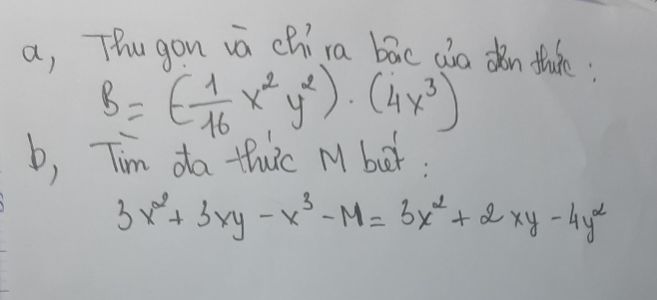 a, Thu gọn và chỉ ra bậc của đơn thức :
B = (-1/16 x²y²) . (4x³)
b, Tìm đa thức M biết :
3x² + 3xy - x³ - M = 3x² + 2xy - 4y²